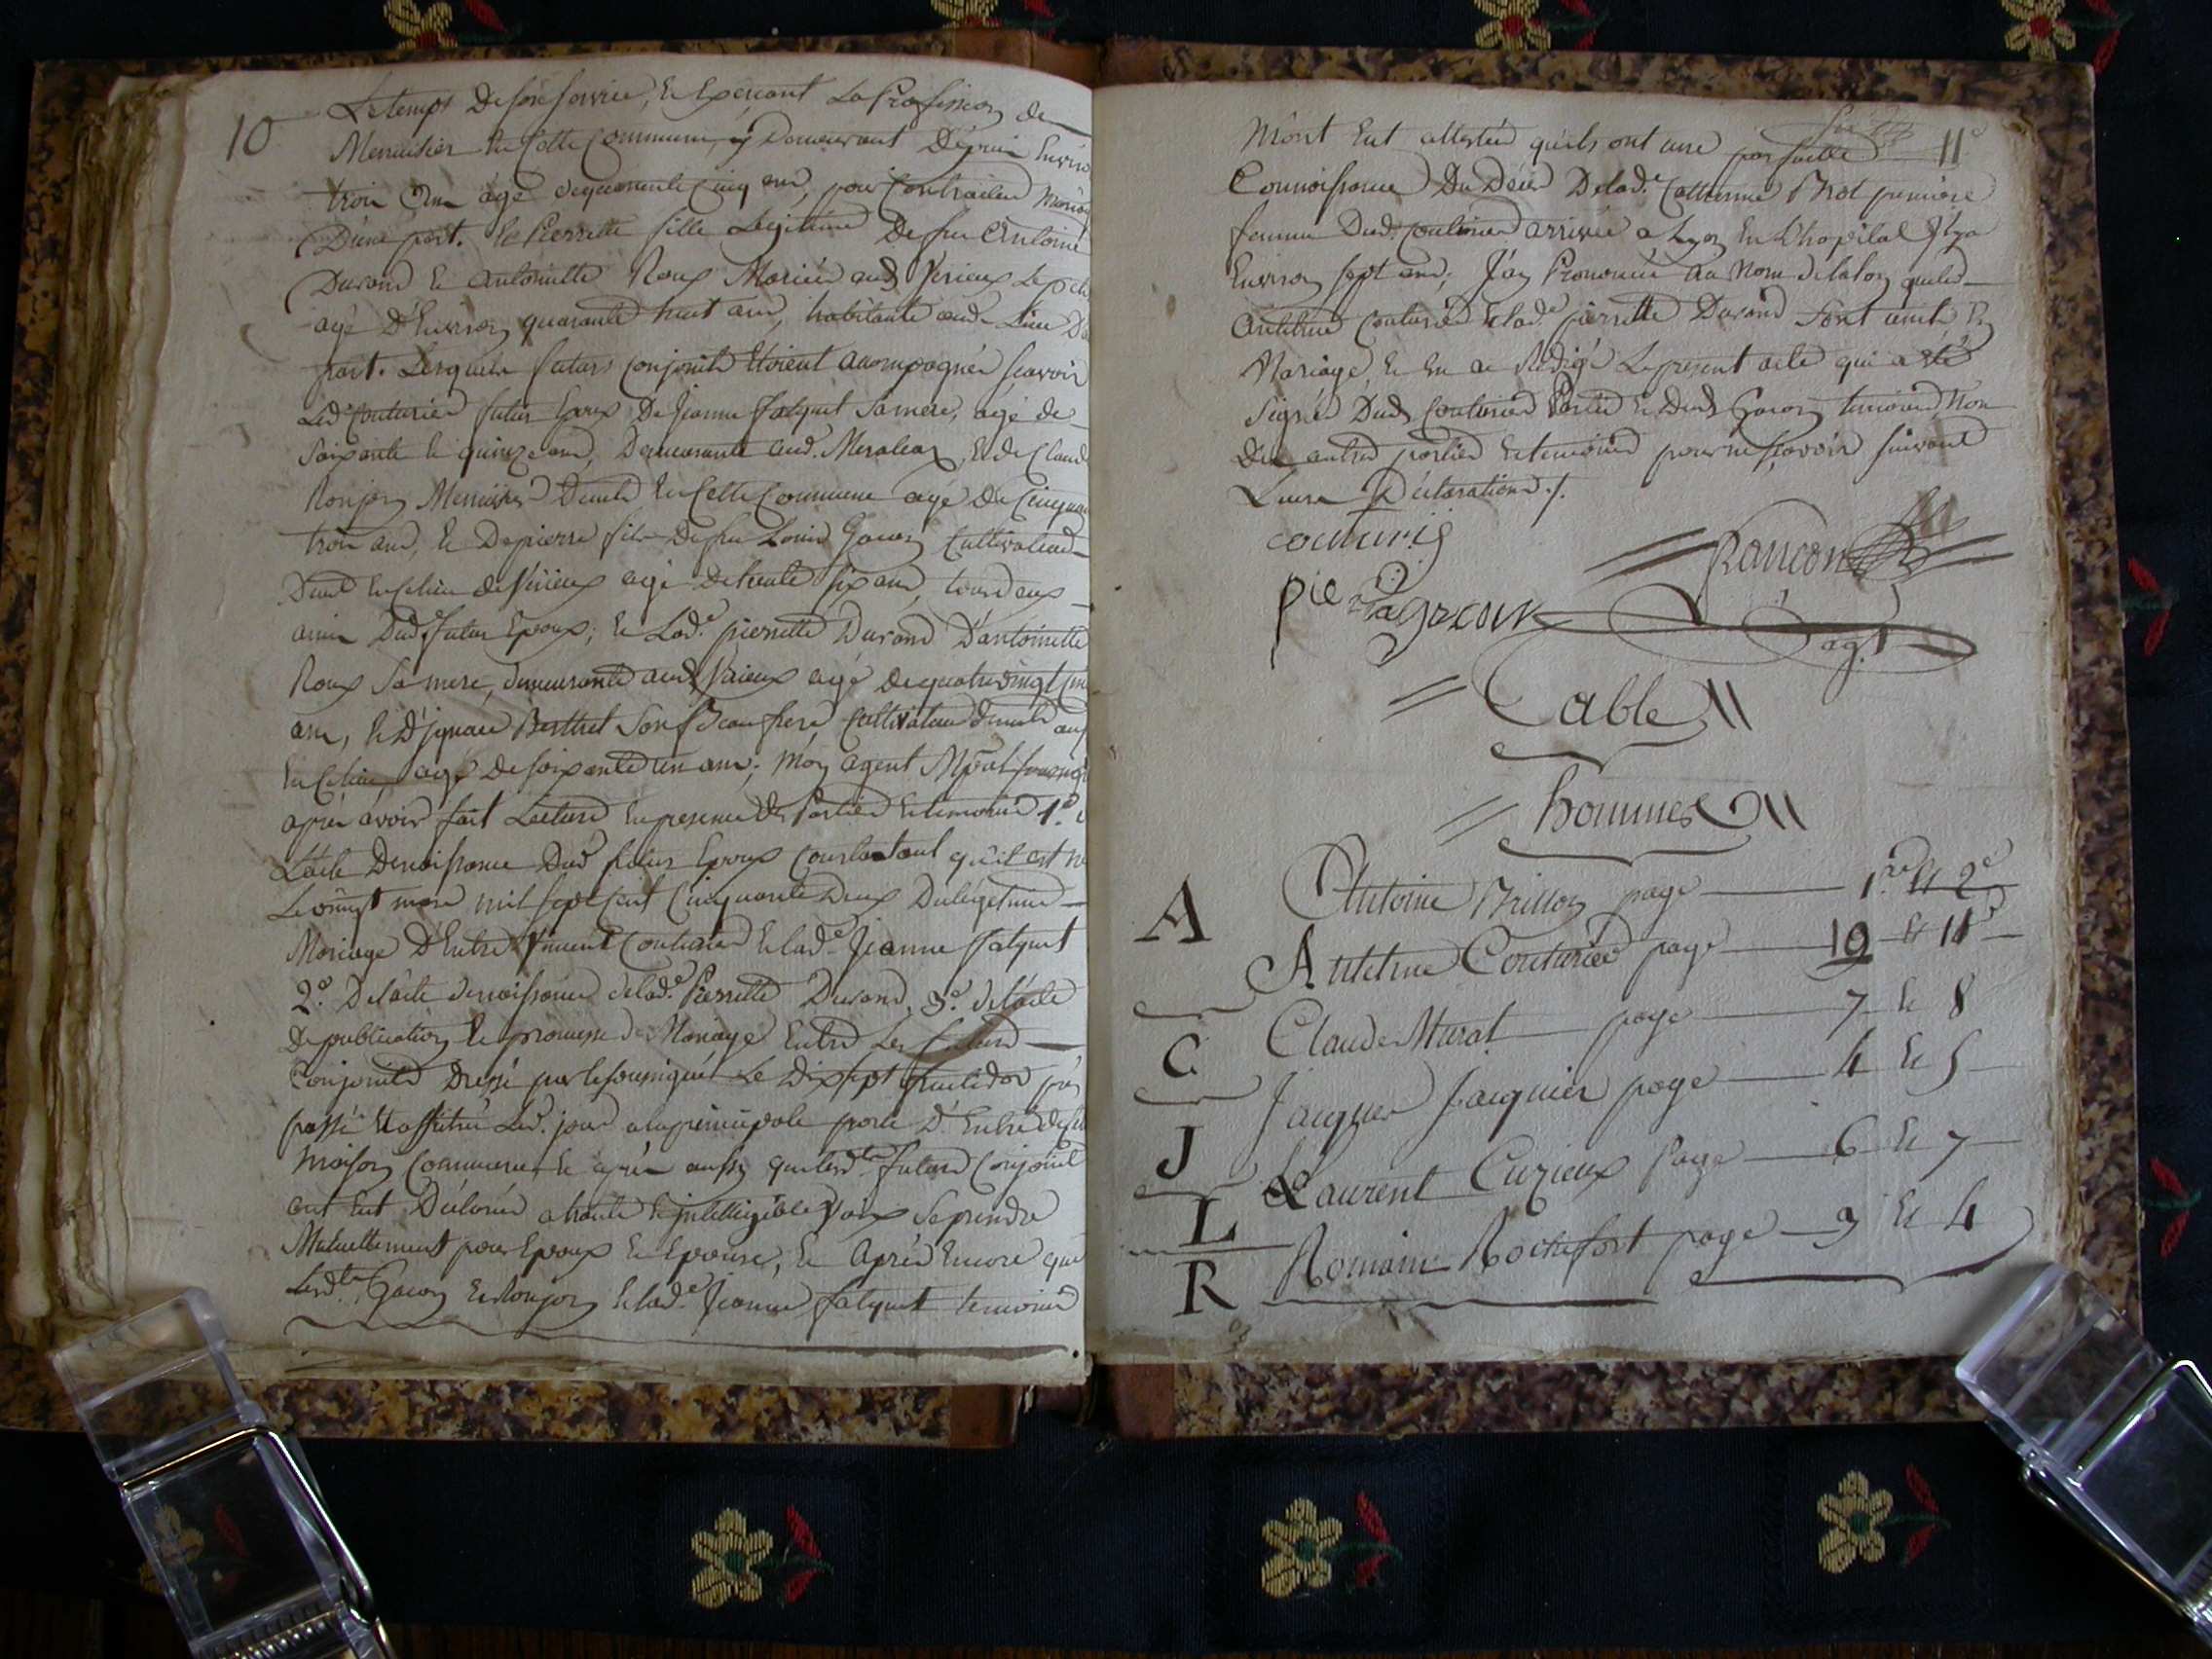 10
Le temps De son service, Et Exerçant La Profession de
Menuisier En Cette Commune, y Demeurant Dépuis Enviro
trois Ans agé de quarante Cinq ans, pour Contracter Mariag
D'une part. Et Pierrette fille Legitime De feu Antoine
Durand Et Antoinette Roux Mariés aud Verieux
agé D'Environ quarante huit ans, habitante aud. Lieu D'a
part. Lesquels futurs Conjoints Etoient accompagnés Sçavoir
Led Couturier futur Epoux De Jeanne falquet Sa mere, agé de
Soixante Et quinze ans, Demeurante aud. Et de Claude
Ronjon Menuisier Demt En Cette Commune agé De Cinquan
trois ans, Et De pierre fils De feu Louis Gacon Cultivateur
Demt En Celieu de Verieux agé De trente Six ans, tous deux
amis Dud futur Epoux; Et Lade pierrette Durand D'antoinette
Roux Sa mere, demeurante aud Verieux agé De quatre vingt
ans, Et D'ignace Berthet Son Beaufrere, Cultivateur
En Celieu, agé De Soixante un ans; Moy agent
après avoir fait Lecture En presence Des Parties Et temoins 1.o
L'acte De naissance Dud futur Epoux Constatant qu'il est né
Le vingt mars mil Sept Cent Cinquante Deux Du légitime
Mariage D'Entre Vincent Couturier Et lade. Jeanne falquet
2.o De l'acte de naissance de lade. Pierrette Durand, 3.o de l'acte
De publication Et promesse de Mariage Entre Les futurs
Conjoints Dressé par le soussigné Le Dix Sept fructidor
passé Et affiché Led. jour a la principale porte D'Entré de la
Maison Commune, Et après aussy que lesdts futurs Conjoints
ont Eut Déclarés a haute Et intelligible Voix Se prendre
Mutuellement pour Epoux Et Epouse, Et Après Encore que
Lesdts. Gacon Et Ronjon Et lade. Jeanne falquet temoins
11e
M'ont Eut attestés qu'ils ont une parfaitte
Connoissance Du Décès De lade. Catherine Brot premiere
femme Dud. Couturier arrivée a Lyon En L'hopital Il y a
Environ Sept ans; J'ay Prononcé Au Nom de la loy que led
Couturier Et lade. pierrette Durand Sont unit En
Mariage, Et En ai Redigé Le present acte qui a eté
Signé Dud Couturier Partie Et Dud Gacon temoins, Non
Des autres parties Et temoins pour ne Sçavoir Suivant
Leurs Déclarations ./.
Rancon
agt
Table
hommes
A
Antoine Brillon page 1.re Et 2e
Couturier page 10 Et 11e
C
Claude Murat page 7 Et 8
J
Jacques Jacquier page 4 Et 5
L
Laurent Curieux Page 6 Et 7
R
Romain Rochefort page 3 Et 4